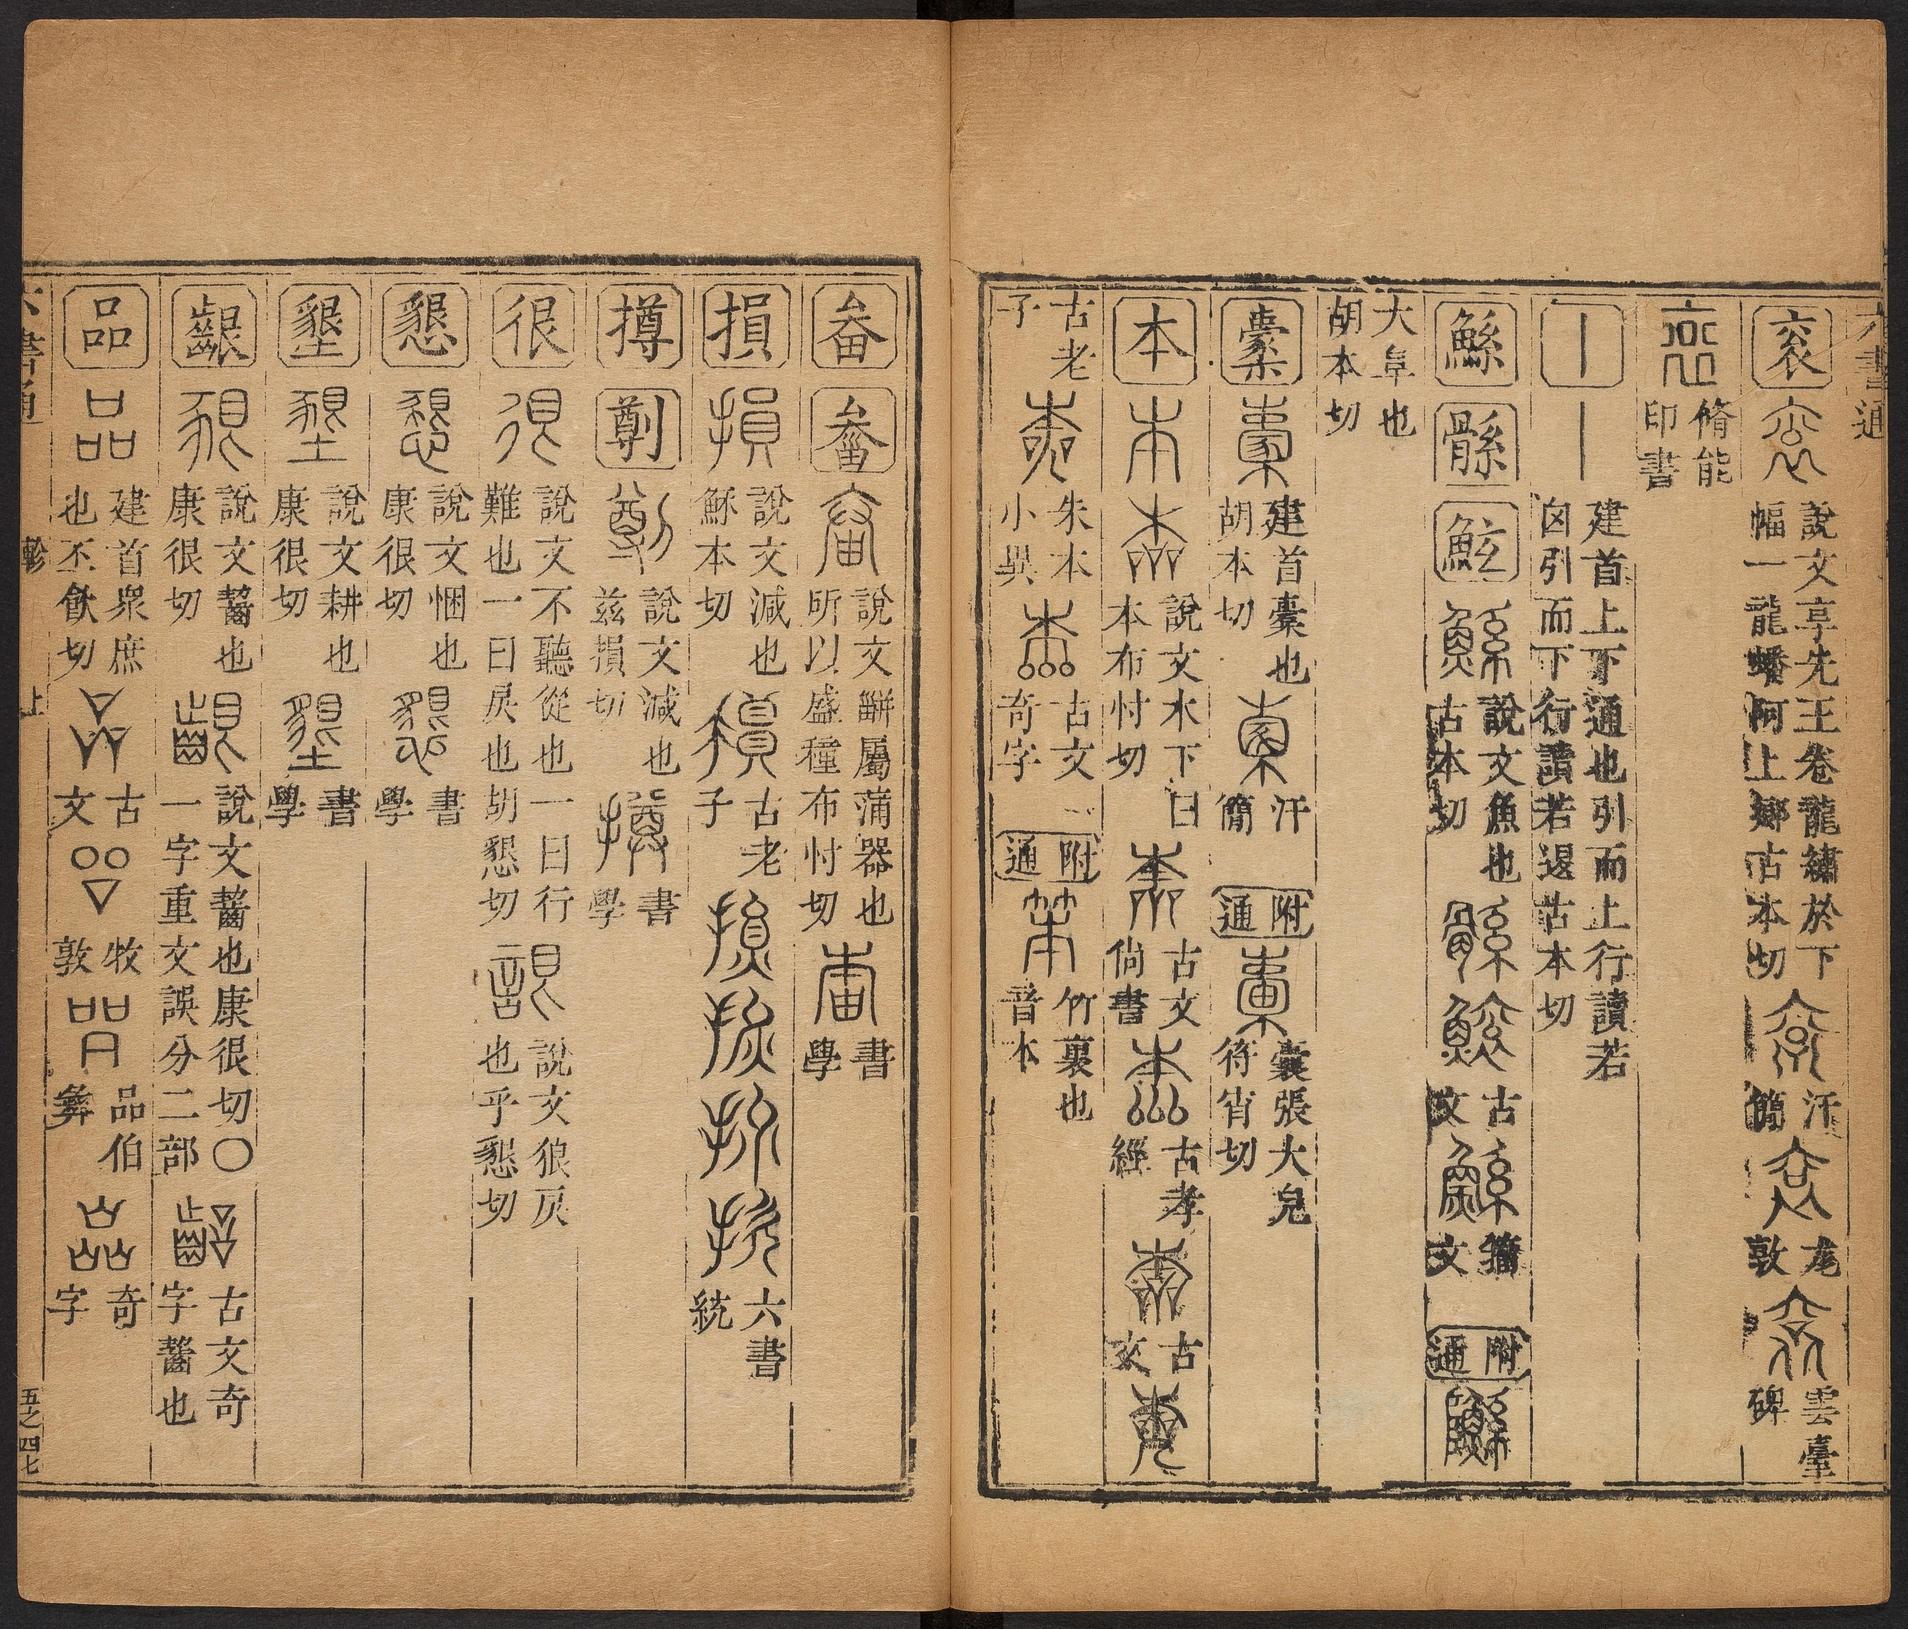 六書通
袞
說文享先王卷龍繡於下
幅一龍蟠阿上鄉古本切
汗
簡
尨
敦
雲臺
碑
脩能
印書
丨
建首上下通也引而上行讀若
囟引而下行讀若退古本切
鯀
鮌
說文魚也
古本切
古
文
籀
文
附
通
大阜也
胡本切
橐
建首橐也
胡本切
汗
簡
附
通
囊張大皃
符宵切
本
說文木下曰
本布忖切
古文
尚書
古孝
經
古
文
古老
子
朱本
小異
古文
奇字
附
通
竹裏也
音本
畚
說文䉛屬蒲器也
所以盛種布忖切
書
學
損
說文減也
穌本切
古老
子
六書
統
撙
說文減也
茲損切
書
學
很
說文不聽從也一曰行
難也一曰戾也胡懇切
說文狼戾
也乎懇切
懇
說文悃也
康很切
書
學
墾
說文耕也
康很切
書
學
齦
說文齧也
康很切
說文齧也康很切〇
一字重文誤分二部
古文奇
字齧也
品
建首眾庶
也丕飲切
古
文
牧
敦
品伯
彝
奇
字
六書通
軫
上
五之四七